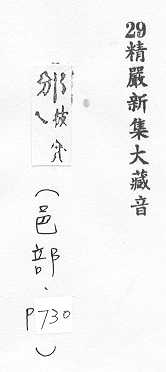 29精嚴新集大藏音
(邑部、P730)